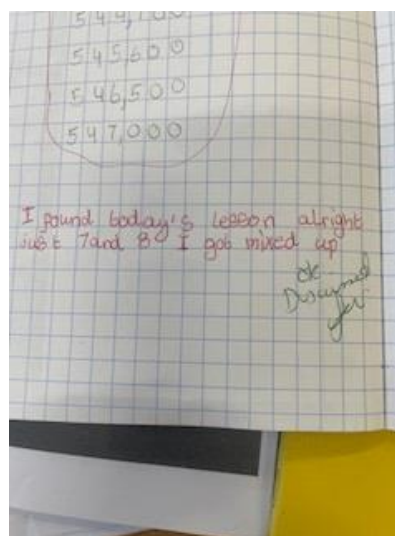 545,600
546,500
547,000
I found today's lesson alright
just 7 and 8 I got mixed up
ok
Discussed